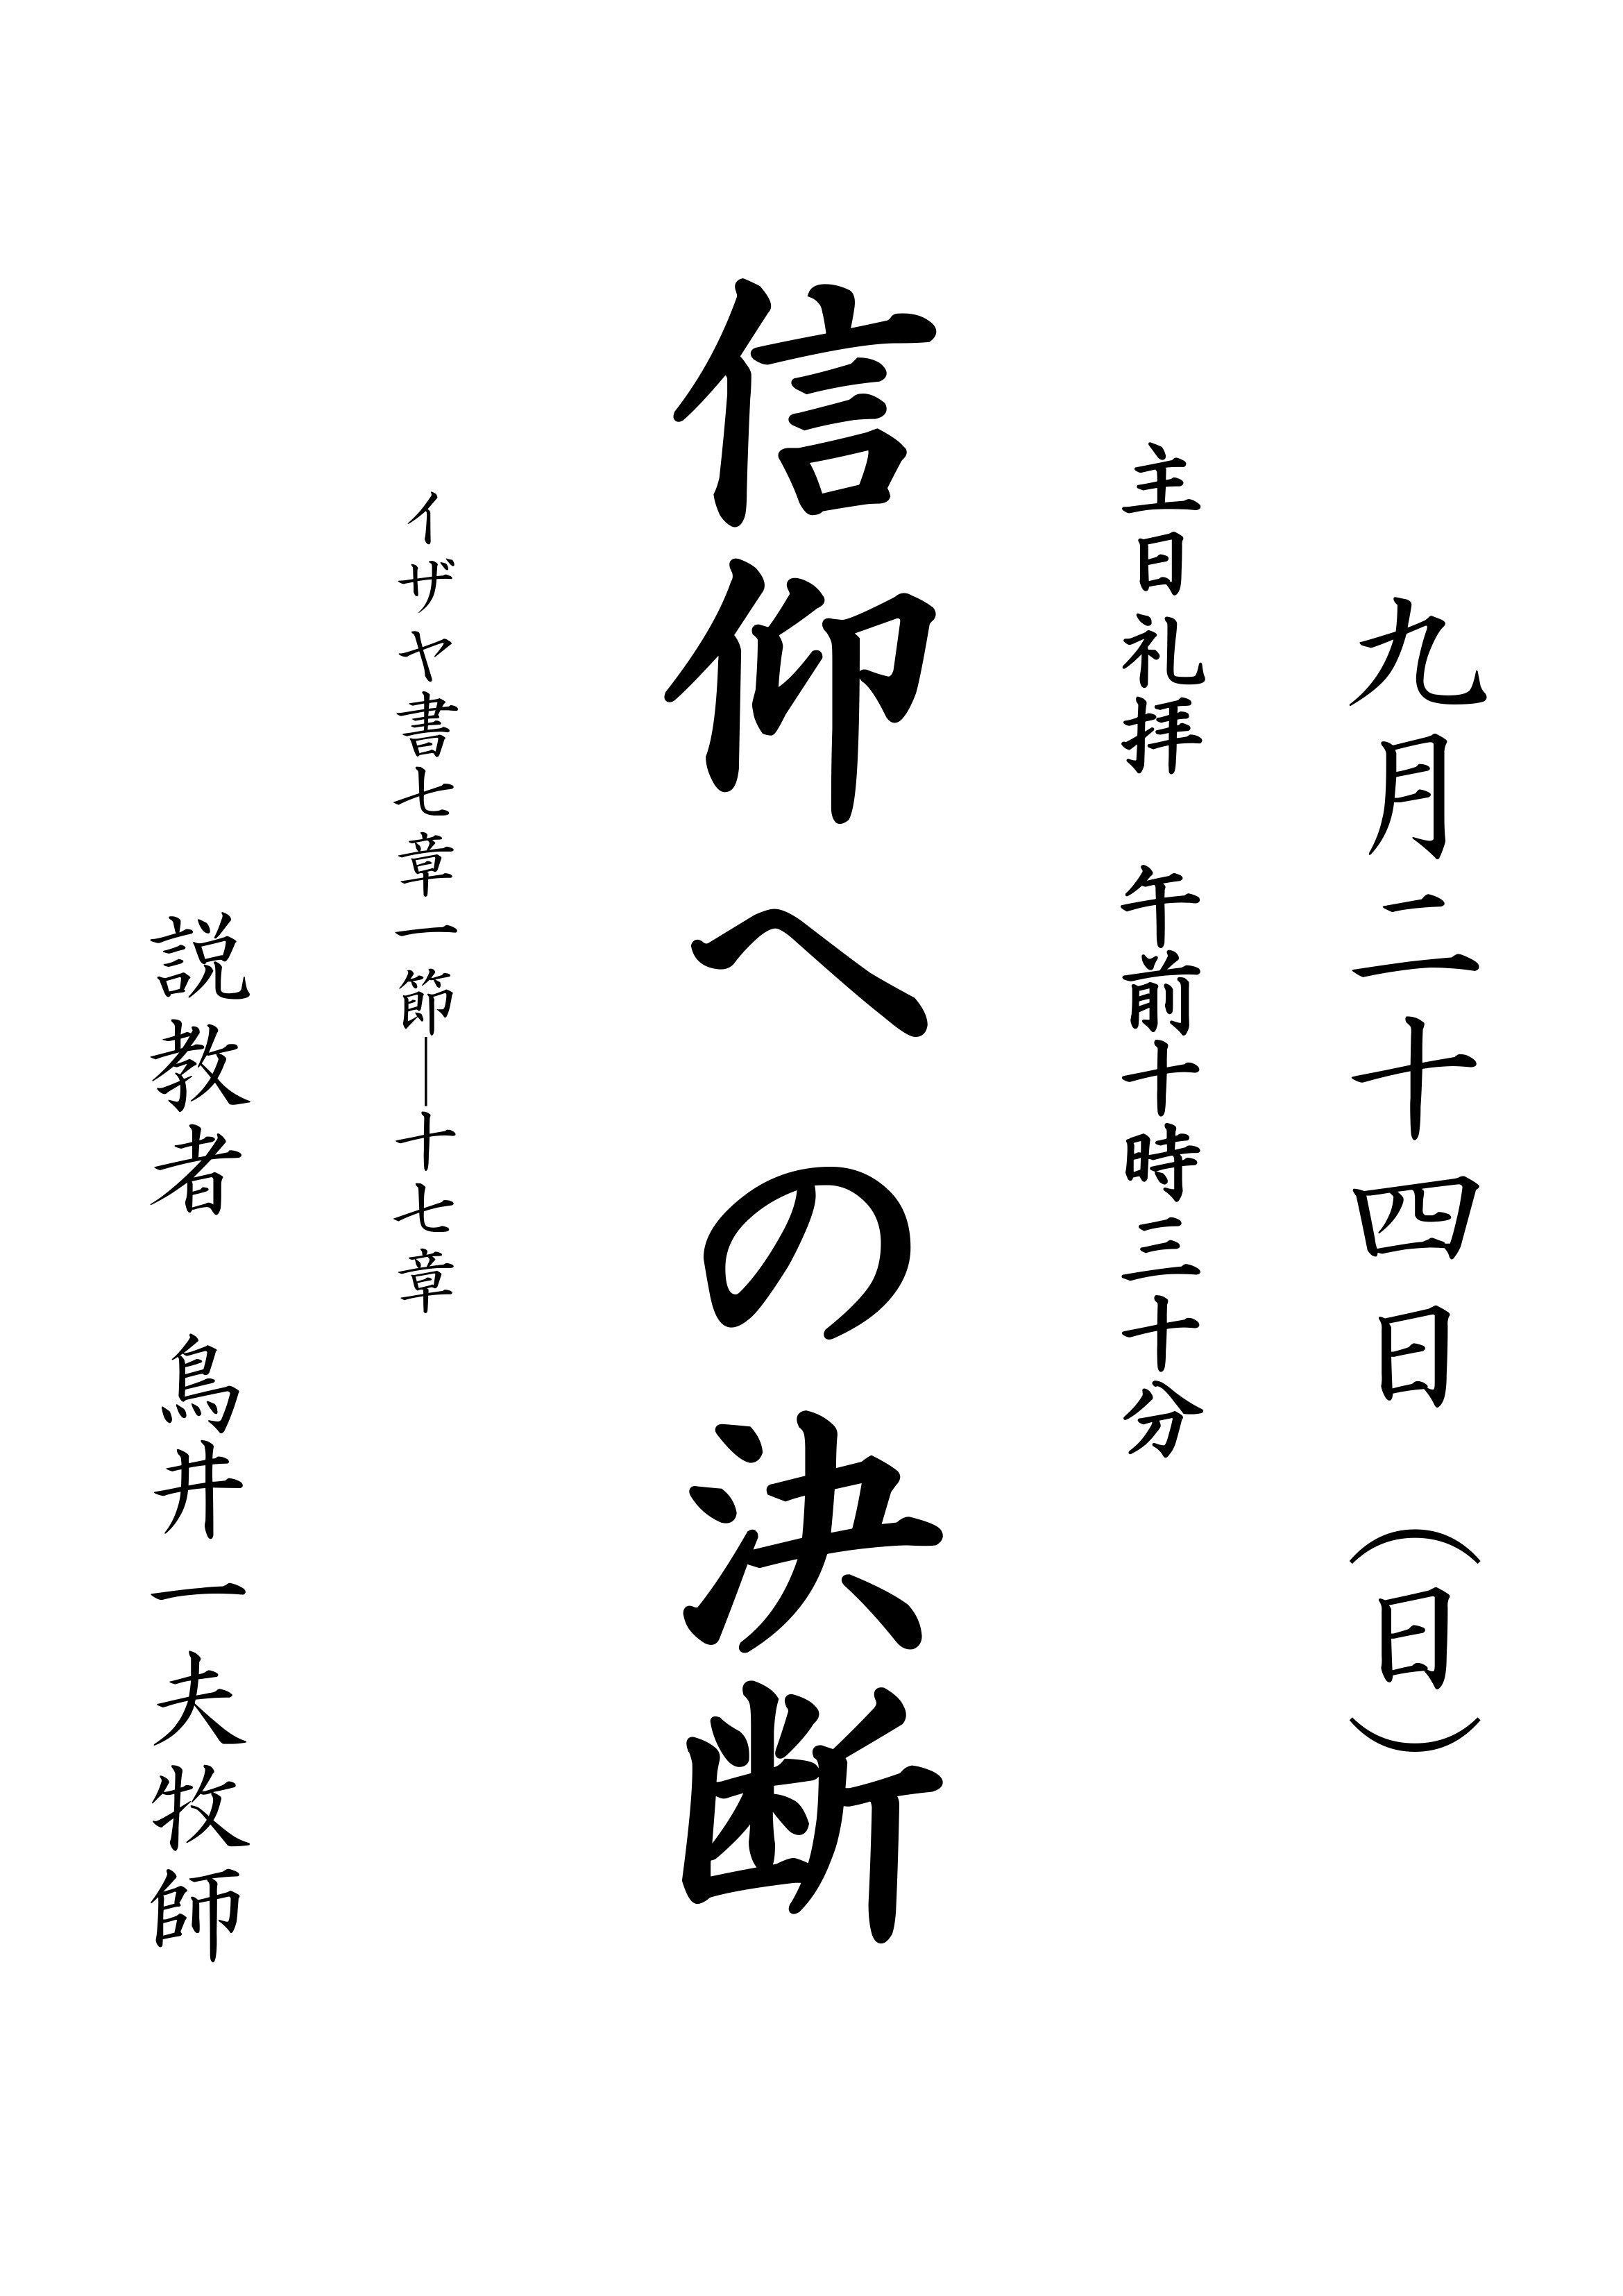 九月二十四日　（日）
主日礼拝　午前十時三十分
信仰への決断
イザヤ書七章一節―十七章
説教者　鳥井一夫牧師